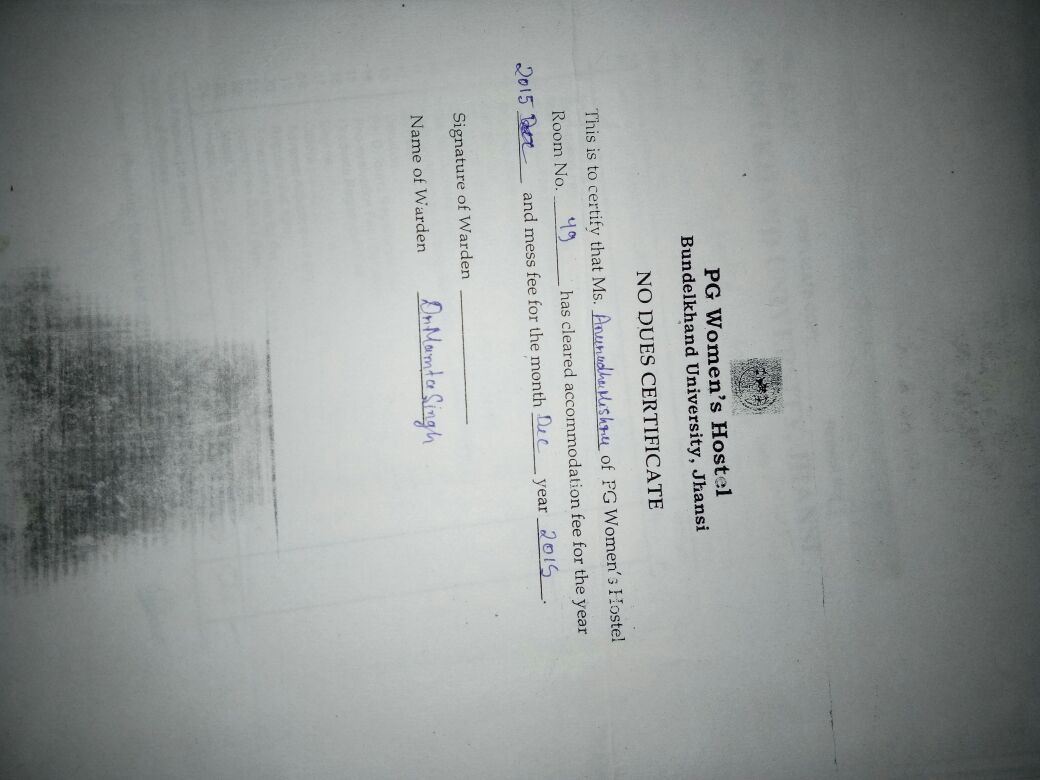 PG Women's Hostel
Bundelkhand University, Jhansi
NO DUES CERTIFICATE
This is to certify that Ms. Anuradha Mishra of PG Women's Hostel
Room No. 49 has cleared accommodation fee for the year
2015 Dec and mess fee for the month Dec year 2015.
Signature of Warden
Name of Warden Dr. Mamta Singh